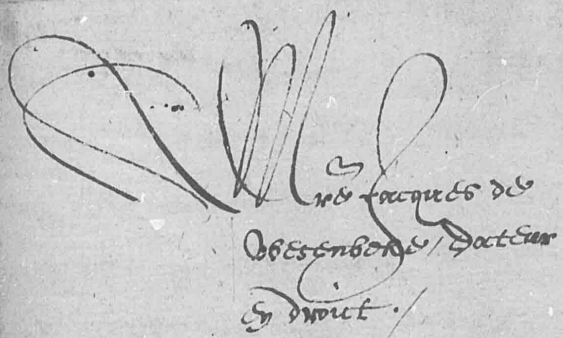 Mre Jacques de
Wesenbeke / Docteur
en droict ./